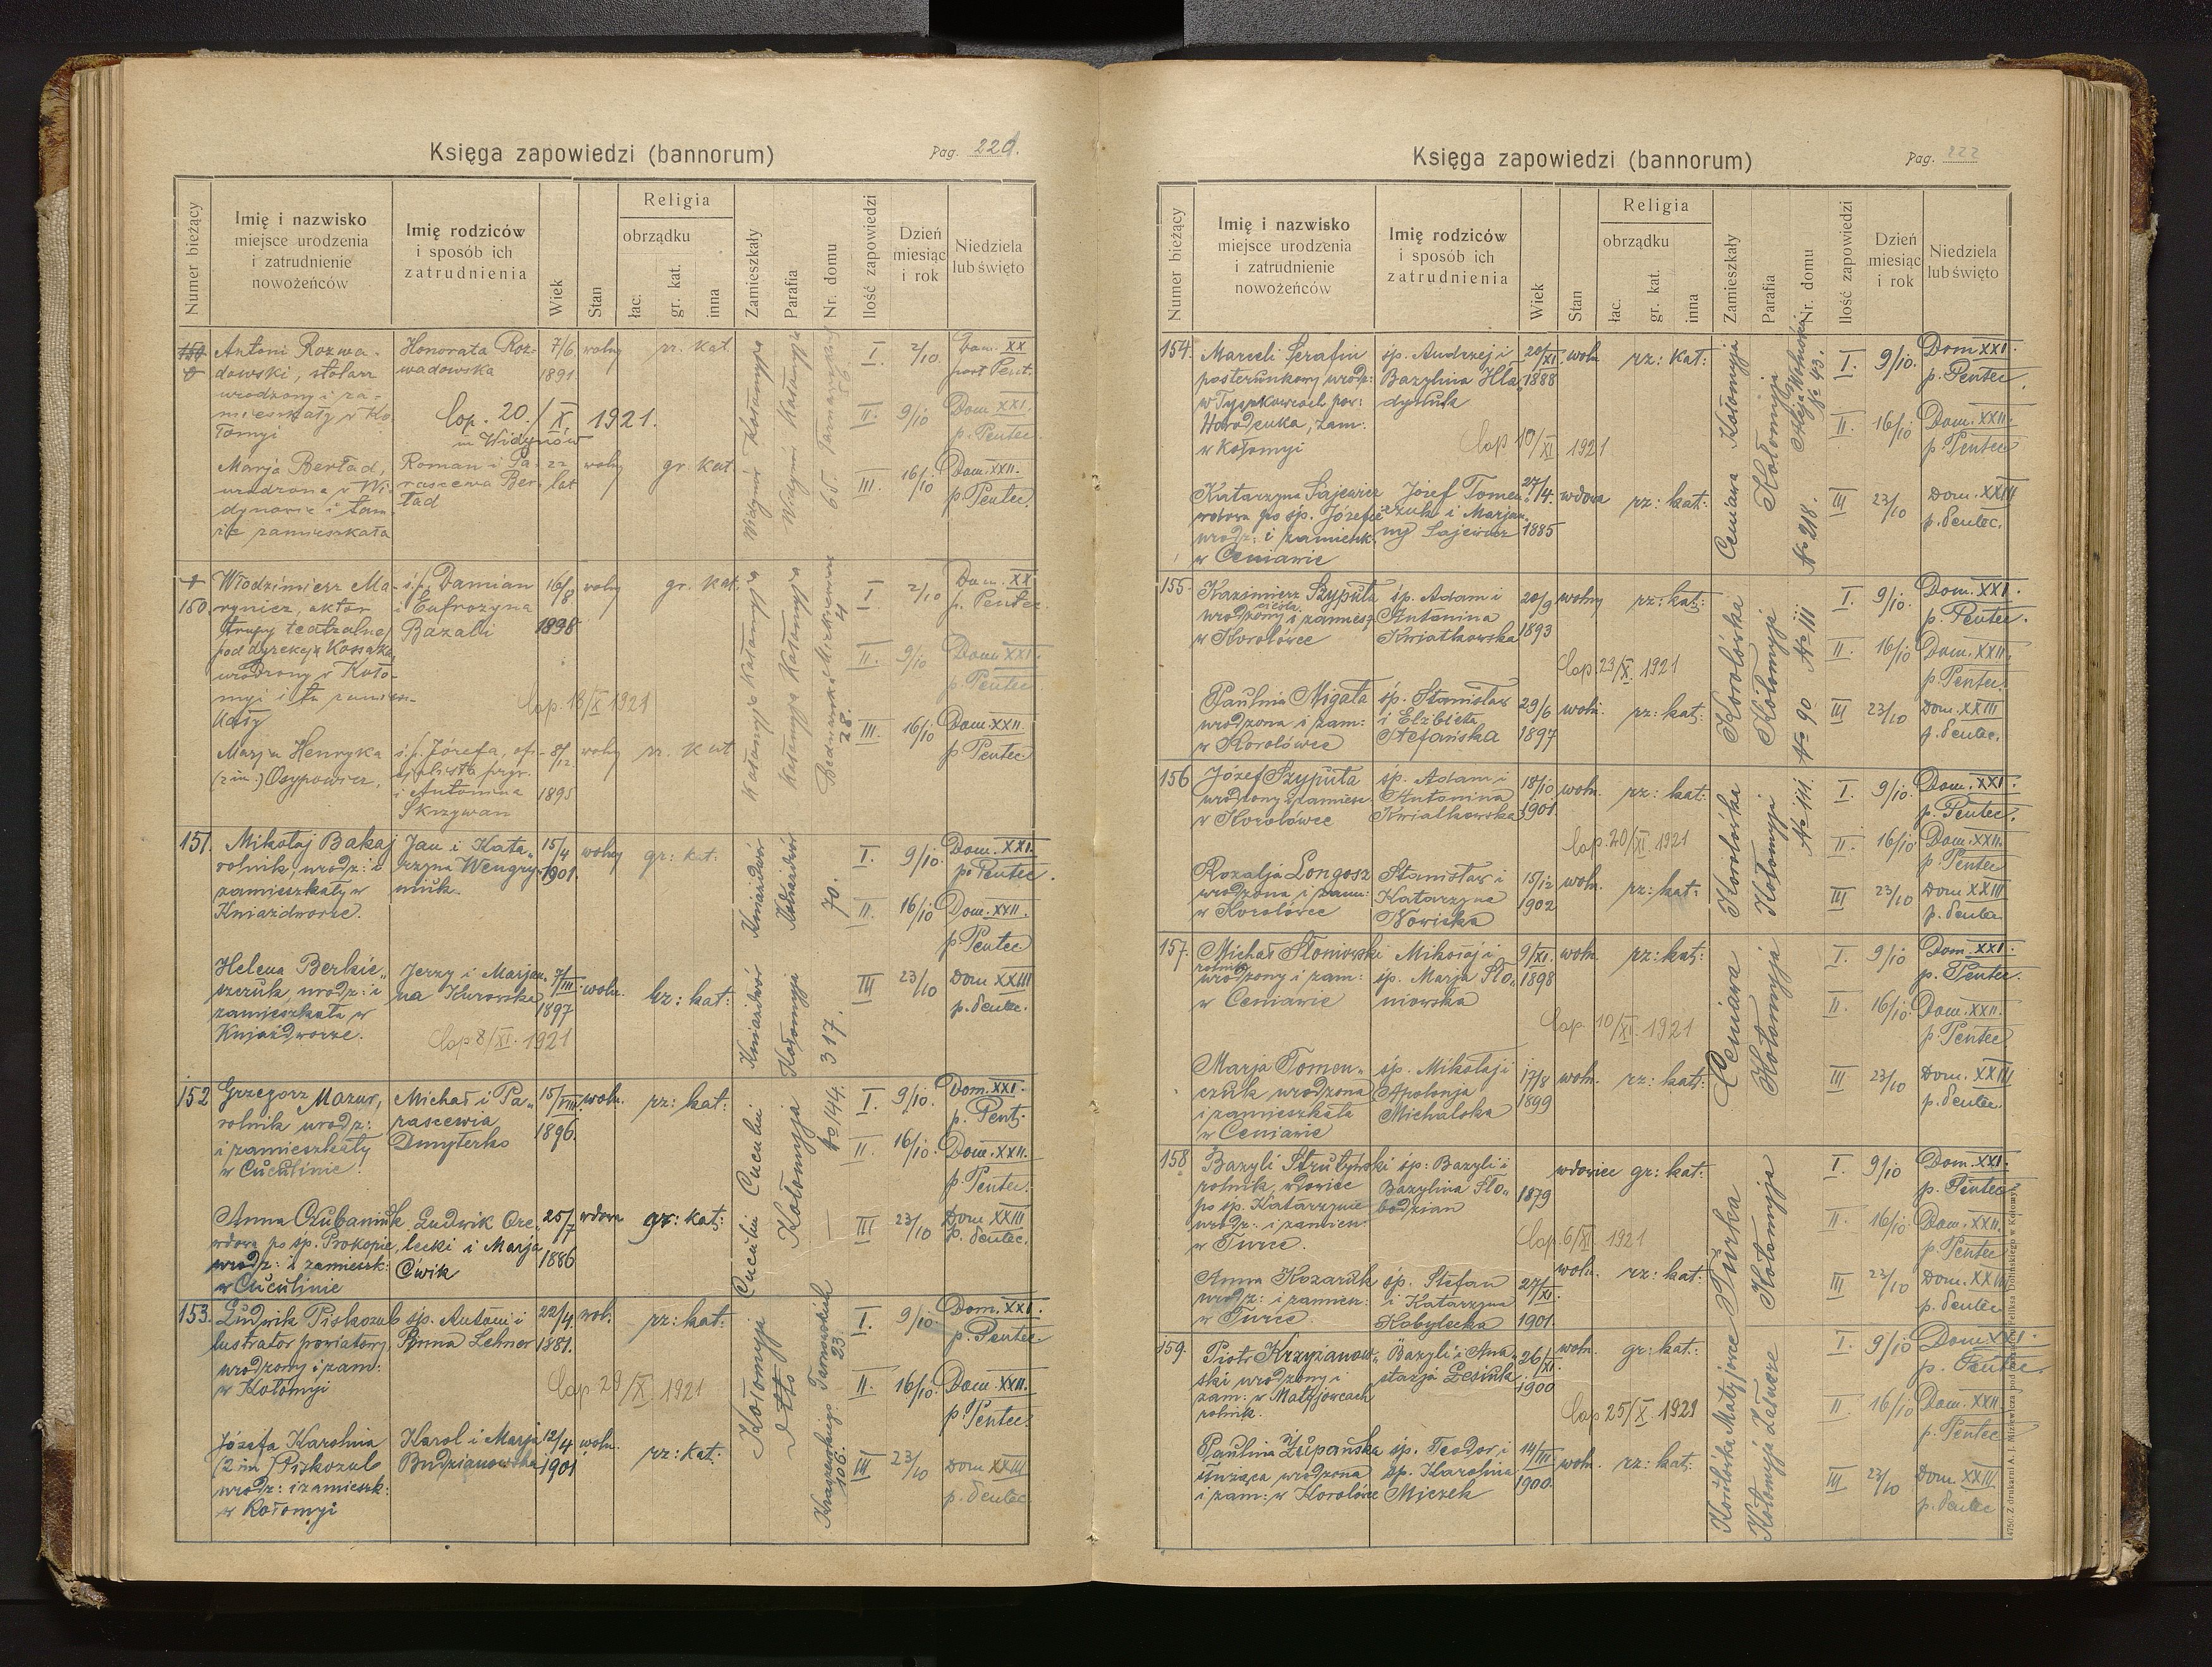 Księga zapowiedzi (bannorum)
Pag. 221.
Numer bieżący
Imię i nazwisko
miejsce urodzenia
i zatrudnienie
nowożeńców
Imię rodziców
i sposób ich
zatrudnienia
Wiek
Stan
Religia
obrządku
łac.
gr. kat.
inna
Zamieszkały
Parafia
Nr. domu
Ilość zapowiedzi
Dzień
miesiąc
i rok
Niedziela
lub święto
Antoni Rozwa-
dowski, stolarz
urodzony i za-
mieszkały w Ko-
łomyi
Honorata Roz-
wadowska
7/6
1891
wolny
rz. kat.
Kołomyja
Kołomyja
Tarnawskich
I
2/10.
Dom. XX
post Pent.
Cop. 20./X 1921.
in Widynów
II.
9/10
Dom. XXI.
p. Pentec.
Marja Berład,
urodzona w Wi-
dynowie i tam-
że zamieszkała
Roman i Pa-
rascewa Ber-
ład
22
lat
wolny
gr. kat.
Widynów
Widynów
65.
III.
16/10
Dom. XXII.
p. Pentec.
150
Włodzimierz Ma-
rynicz, aktor
trupy teatralnej
pod dyrekcją Kossaka
urodzony w Koło-
myi i tu zamiesz-
kały
ś.p. Damian
i Eufrozyna
Bazali
16/8
1898
wolny
gr. kat.
Kołomyja
Kołomyja
Mickiewicza
4
I
2/10
Dom. XX
p. Pentec.
II.
9/10
Dom. XXI.
p. Pentec
Cop. 18/X 1921
Marja Henryka
(2 im.) Osypowicz.
ś.p. Józefa, of-
icjalista pryw.
i Antonina
Skrzywan
8/12.
1895
wolny
rz. kat
Kołomyja
Kołomyja
Bednarska
28.
III.
16/10
Dom. XXII.
p. Pentec
151.
Mikołaj Bakaj
rolnik, urodz: i
zamieszkały w
Kniażdworze.
Jan i Kata„
rzyna Wengry-
niuk.
15/4
1901.
wolny
gr: kat:
Kniaźdwór
Kniaźdwór
70.
I.
9/10.
Dom. XXI.
p. Pentec.
II.
16/10
Dom. XXII.
p. Pentec
Helena Berkie„
szczuk, urodz: i
zamieszkała w
Kniaźdworze.
Jerzy i Marjan„
na Kurowska
7/III.
1897
woln.
rz: kat:
Kniaźdwór
Kołomyja
317.
III
23/10
Dom XXIII
p. Pentec.
Cop. 8/XI. 1921
152
Grzegorz Mazur,
rolnik urodz:
i zamieszkały
w Cuculinie.
Michał i Pa„
rascewia
Dmyterko
15/VIII.
1896.
woln.
rz: kat:
Cuculin
Kołomyja
No 144.
I.
9/10.
Dom. XXI.
p. Pent:
II.
16/10.
Dom. XXII.
p. Pentec.
Anna Czubaniuk
wdowa po śp. Prokopie,
urodz: i zamieszk:
w Cuculinie
Ludwik Ore-
lecki i Marja
Cwik
25/7
1886
wdowa
gr: kat:
Cuculin
III
23/10
Dom XXIII
p. Pentec.
153.
Ludwik Piskozub
lustrator powiatowy
urodzony i zam:
w Kołomyi
śp. Antoni i
Anna Lehner
22/4.
1881.
woln.
rz: kat:
Kołomyja
Tarnawskich
23.
I.
9/10
Dom. XXI.
p. Pentec.
Cop. 29/X 1921
II.
16/10.
Dom. XXII.
p. Pentec.
Józefa Karolina
(2 im) Piskozub
urodz: i zamieszk:
w Kołomyi
Karol i Marja
Budzianowska
12/4
1901
woln.
rz: kat:
dtto
Kraszewskiego
106.
III
23/10
Dom XXIII
p. Pentec
Księga zapowiedzi (bannorum)
Pag. 222
Numer bieżący
Imię i nazwisko
miejsce urodzenia
i zatrudnienie
nowożeńców
Imię rodziców
i sposób ich
zatrudnienia
Wiek
Stan
Religia
obrządku
łac.
gr. kat.
inna
Zamieszkały
Parafia
Nr. domu
Ilość zapowiedzi
Dzień
miesiąc
i rok
Niedziela
lub święto
154.
Marceli Serafin
posterunkowy urodz:
w Tyszkowcach pow:
Horodenka, zam:
w Kołomyi
śp. Andrzej i
Bazylina Hła„
dyniuk
20/XI.
1888
woln.
rz: kat:
Kołomyja
Kołomyja
Aleja Wolności
No 43.
I.
9/10.
Dom XXI.
p. Pentec.
Cop 10/XI 1921
II.
16/10
Dom. XXII.
p. Pentec
Katarzyna Sajewicz
wdowa po śp. Józefie
urodz: i zamieszk:
w Ceniawie
Józef Tomen„
czuk i Marjan„
ny Sajewicz
27/4.
1885
wdowa
rz: kat:
Ceniawa
No 218.
III
23/10
Dom. XXIII
p. Pentec.
155.
Kazimierz Szypuła
cieśla
urodzony i zamiesz.
w Korolówce
śp. Adam i
Antonina
Kwiatkowska
20/9
1893
wolny
rz: kat:
Korolówka
Kołomyja
No 111
I.
9/10.
Dom. XXI.
p. Pentec.
Cop. 23/X. 1921
II.
16/10
Dom. XXII.
p. Pentec.
Paulina Migała
urodzona i zam:
w Korolówce
śp. Stanisław
i Elżbieta
Stefańska
29/6
1897
woln.
rz: kat:
No 90
III
23/10
Dom. XXIII
p. Pentec.
156
Józef Szypuła
urodzony i zamiesz.
w Korolówce
śp. Adam i
Antonina
Kwiatkowska
18/10
1901.
woln.
rz: kat:
Korolówka
Kołomyja
No 111.
I.
9/10.
Dom. XXI.
p. Pentec.
Cop. 20/XI 1921
II.
16/10
Dom. XXII.
p. Pentec
Rozalja Longosz
urodzona i zam:
w Korolówce
Stanisław i
Katarzyna
Nowicka
15/12
1902
woln.
rz: kat:
III
23/10
Dom XXIII
p. Pentec
157.
Michał Słoniowski
rolnik
urodzony i zam:
w Ceniawie
Mikołaj i
śp. Marja Sło„
niowska
9/XI.
1898
woln.
rz: kat:
Ceniawa
Kołomyja
I.
9/10
Dom. XXI.
p. Pentec.
II.
16/10.
Dom. XXII.
p. Pentec
Cop. 10/XI. 1921
Marja Tomen„
czuk urodzona
i zamieszkała
w Ceniawie
śp. Mikołaj i
Apolonja
Michalska
17/8
1899
woln.
rz: kat:
III
23/10
Dom. XXIII
p. Pentec.
158
Bazyli Strutyński
rolnik, wdowiec
po śp. Katarzynie
urodz: i zamiesz
w Turce.
śp: Bazyli i
Bazylina Sło„
bodzian
1879
wdowiec
gr: kat:
Turka
Kołomyja
I.
9/10
Dom. XXI.
p. Pentec
Cop. 6/XI. 1921
II.
16/10
Dom. XXII.
p. Pentec
Anna Kozaruk
urodz: i zamiesz:
w Turce.
śp. Stefan
i Katarzyna
Kobylecka
27/XI.
1901.
woln.
rz: kat:
III
23/10
Dom. XXIII
p. Pentec
159.
Piotr Krzyżanow„
ski urodzony i
zam: w Matyjowcach
rolnik.
Bazyli i Ana„
stazja Lesiuk
26/XI.
1900
woln.
gr: kat:
Matyjowce
Załucze
I.
9/10
Dom XXI.
p. Pentec.
Cop 25/X. 1921
II.
16/10
Dom. XXII.
p. Pentec
Paulina Żupańska
służąca urodzona
i zam: w Korolówce
śp. Teodor i
śp. Karolina
Miczek
14/III
1900.
woln.
rz: kat:
Korolówka
Kołomyja
III
23/10
Dom. XXIII
p. Pentec